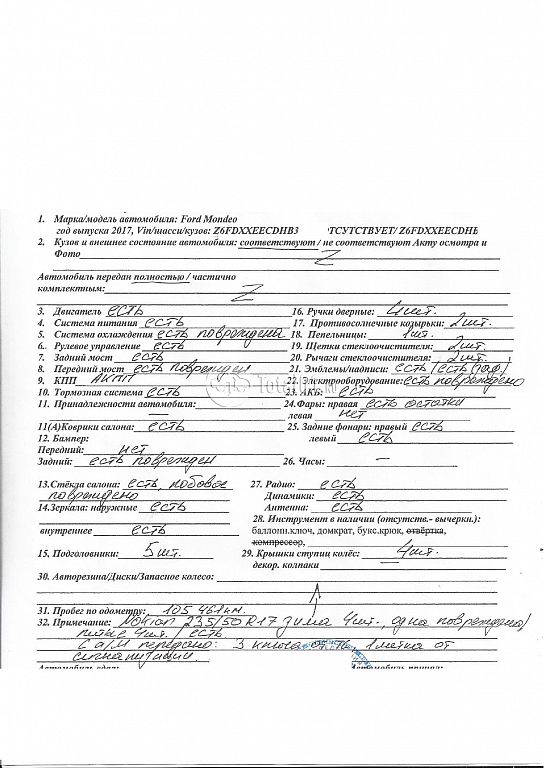 1. Марка/модель автомобиля: Ford Mondeo
год выпуска 2017, Vin/шасси/кузов: Z6FDXXEECDHB3 ТСУТСТВУЕТ/ Z6FDXXEECDHB
2. Кузов и внешнее состояние автомобиля: соответствуют / не соответствуют Акту осмотра и
Фото Z
Автомобиль передан полностью / частично
комплектным: Z
3. Двигатель есть
4. Система питания есть
5. Система охлаждения есть повреждена
6. Рулевое управление есть
7. Задний мост есть
8. Передний мост есть поврежден
9. КПП АКПП
10. Тормозная система есть
11. Принадлежности автомобиля:
—
11(А)Коврики салона: есть
12. Бампер:
Передний: нет
Задний: есть поврежден
13.Стёкла салона: есть, лобовое
повреждено
14.Зеркала: наружные есть
внутреннее есть
15. Подголовники: 5 шт.
16. Ручки дверные: 4 шт.
17. Противосолнечные козырьки: 2 шт.
18. Пепельницы: 1 шт.
19. Щетки стеклоочистителя: 2 шт.
20. Рычаги стеклоочистителя: 2 шт.
21. Эмблемы/надписи: есть/есть
22. Электрооборудование: есть повреждено
23. АКБ: есть
24.Фары: правая есть остатки
левая нет
25. Задние фонари: правый есть
левый есть
26. Часы: —
27. Радио: есть
Динамики: есть
Антенна: есть
28. Инструмент в наличии (отсутств.- вычеркн.):
баллонн.ключ, домкрат, букс.крюк, отвёртка,
компрессор,
29. Крышки ступиц колёс: 4 шт.
декор. колпаки —
30. Авторезина/Диски/Запасное колесо:
31. Пробег по одометру: 105 461 км.
32. Примечание: Nokian 235/50 R17 зима 4 шт., одна повреждена/
литые 4 шт. / есть
С а/м передано: 3 ключа от 1 метка от
сигнализации
Автомобиль сдал: Автомобиль принял: